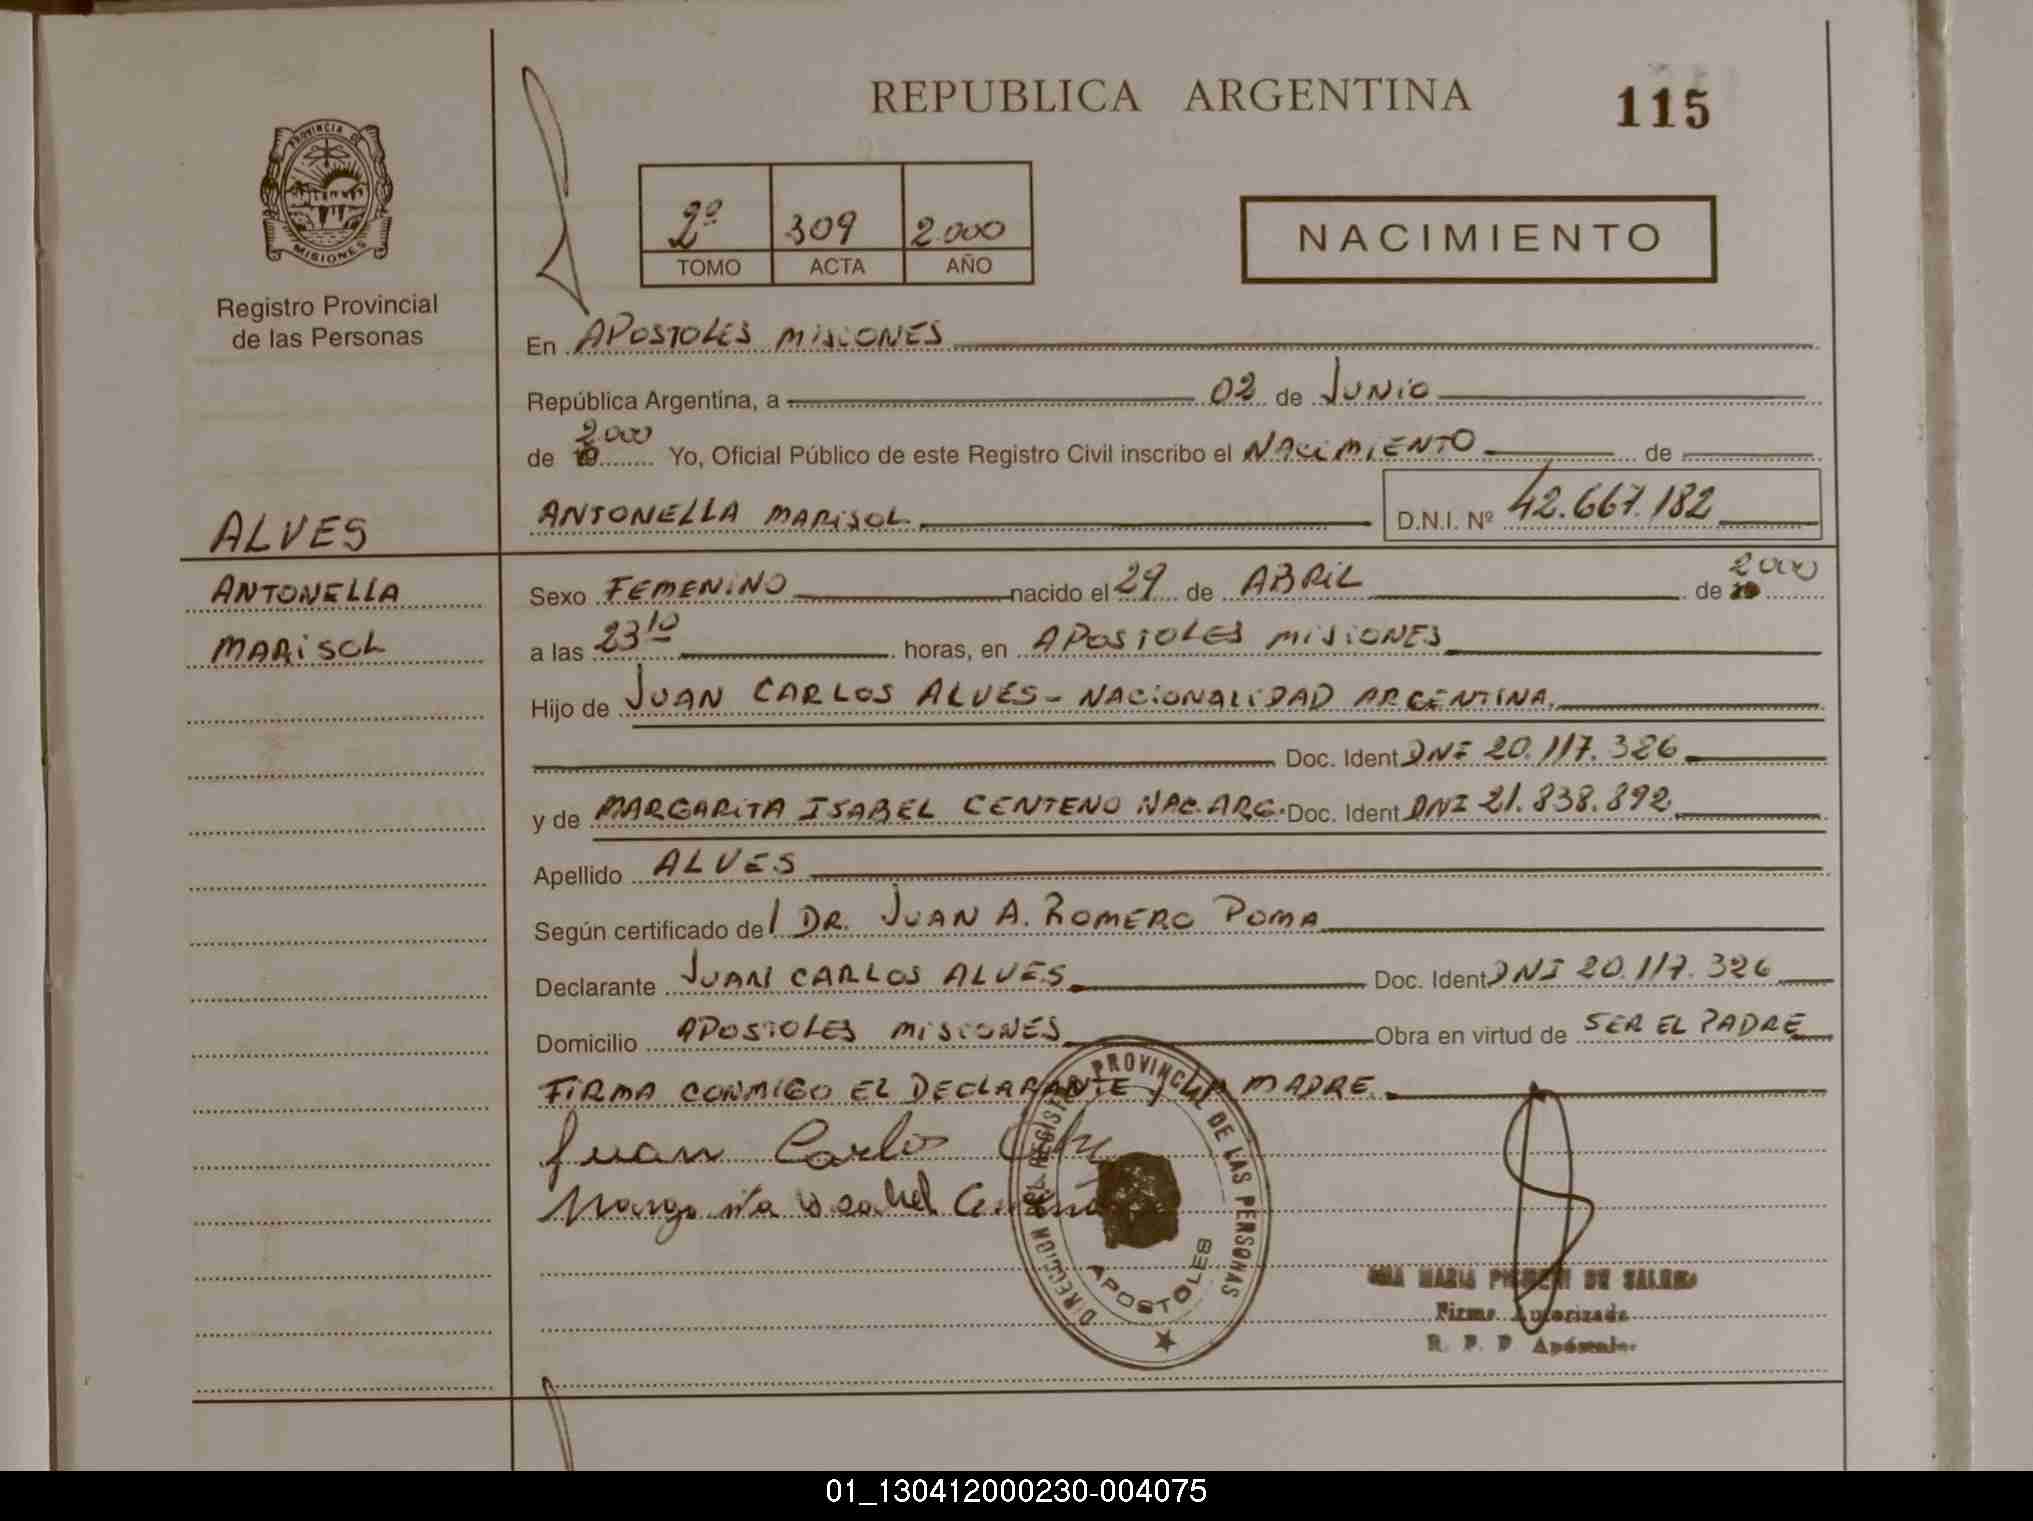 REPUBLICA ARGENTINA
115
PROVINCIA DE
MISIONES
Registro Provincial
de las Personas
2º 309 2.000
TOMO ACTA AÑO
NACIMIENTO
En APOSTOLES MISIONES
República Argentina, a 02 de JUNIO
2000
de 19 Yo, Oficial Público de este Registro Civil inscribo el NACIMIENTO de
ANTONELLA MARISOL D.N.I. Nº 42.667.182
ALVES
ANTONELLA
MARISOL
Sexo FEMENINO nacido el 29 de ABRIL de 2000
a las 23 10 horas, en APOSTOLES MISIONES
Hijo de JUAN CARLOS ALVES - NACIONALIDAD ARGENTINA.
Doc. Ident DNI 20.117.326
y de MARGARITA ISABEL CENTENO NAC. ARG. Doc. Ident DNI 21.838.892
Apellido ALVES
Según certificado de l DR. JUAN A. ROMERO POMA
Declarante JUAN CARLOS ALVES Doc. Ident DNI 20.117.326
Domicilio APOSTOLES MISIONES Obra en virtud de SER EL PADRE
FIRMA CONMIGO EL DECLARANTE y LA MADRE.
Juan Carlos
Margarita Isabel Centeno
DIRECCION DEL REGISTRO PROVINCIAL DE LAS PERSONAS
APOSTOLES
MARIA DE
Firma Autorizada
R. P. P. Apóstoles
01_130412000230-004075